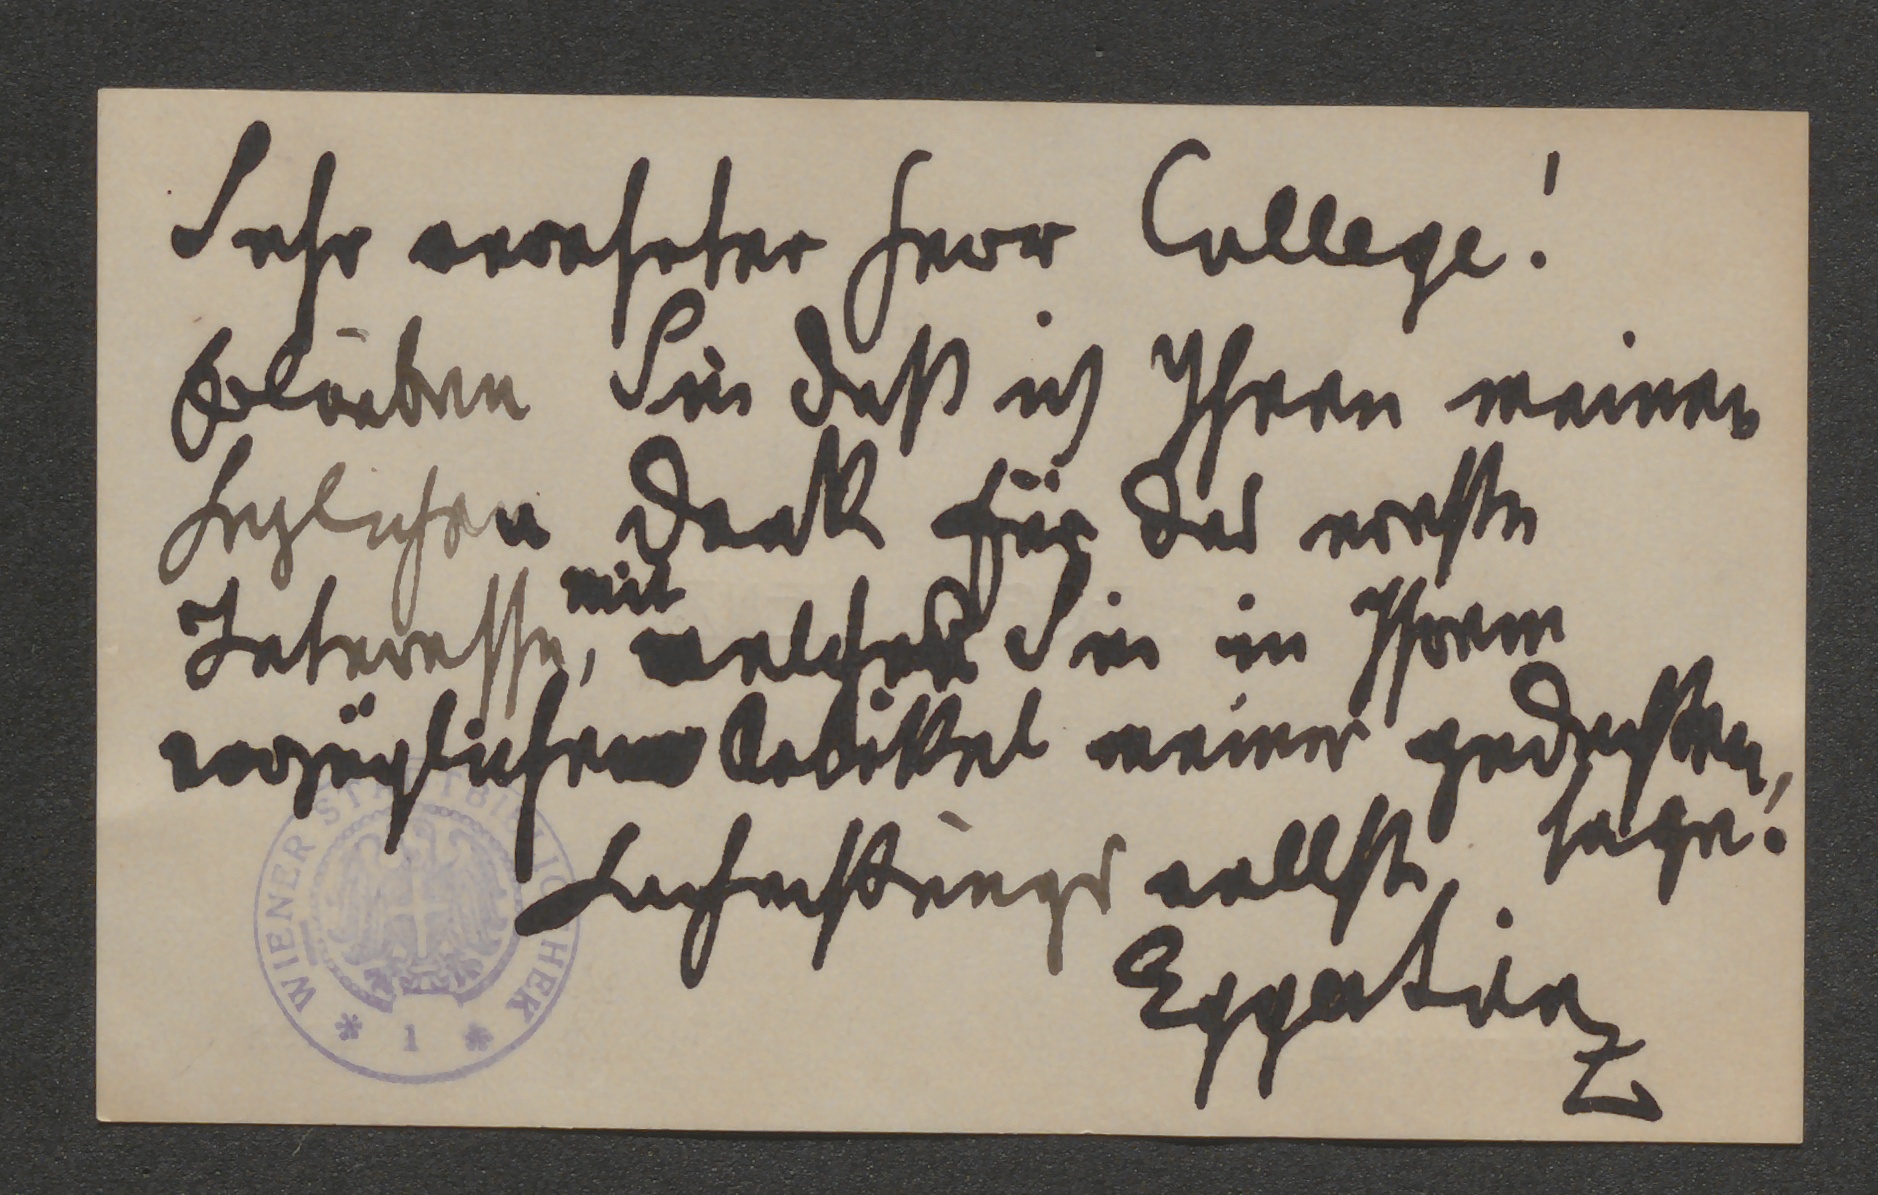 Sehr verehrter Herr College!
Erlauben Sie daß ich Ihnen meinen
herzlichen Dank für das ernste
Interesse, mit welchem Sie in Ihrem
vorzüglichen Artikel meiner gedachten,
sage!
Hochachtungsvollst
WIENER STADTBIBLIOTHEK
* 1 *